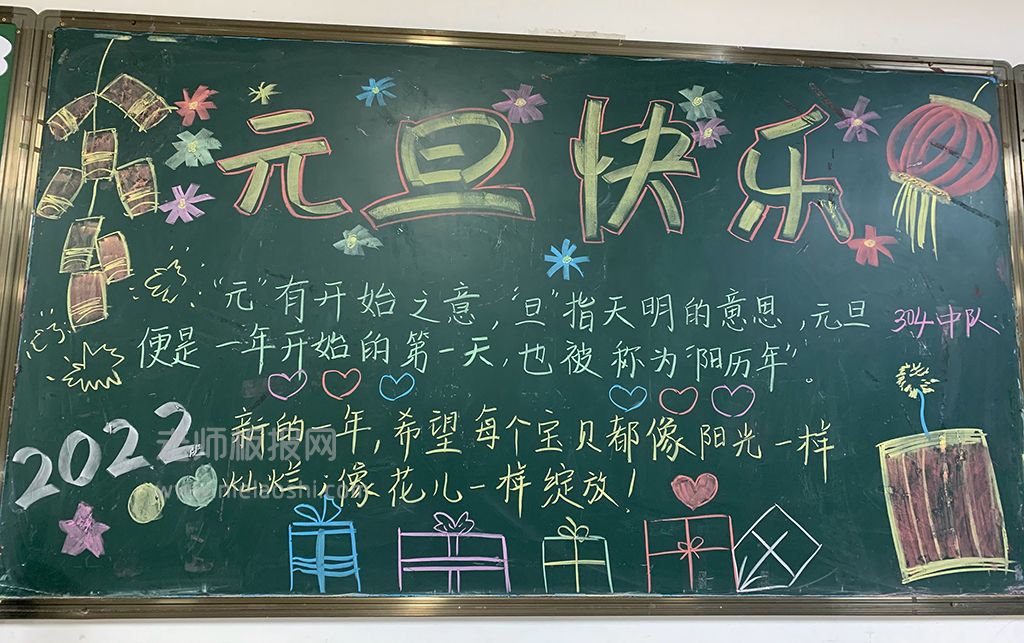 元旦快乐
"元"有开始之意，"旦"指天明的意思，元旦
便是一年开始的第一天，也被称为"阳历年"。
304中队
2022
新的一年，希望每个宝贝都像阳光一样
灿烂，像花儿一样绽放！
老师板报网